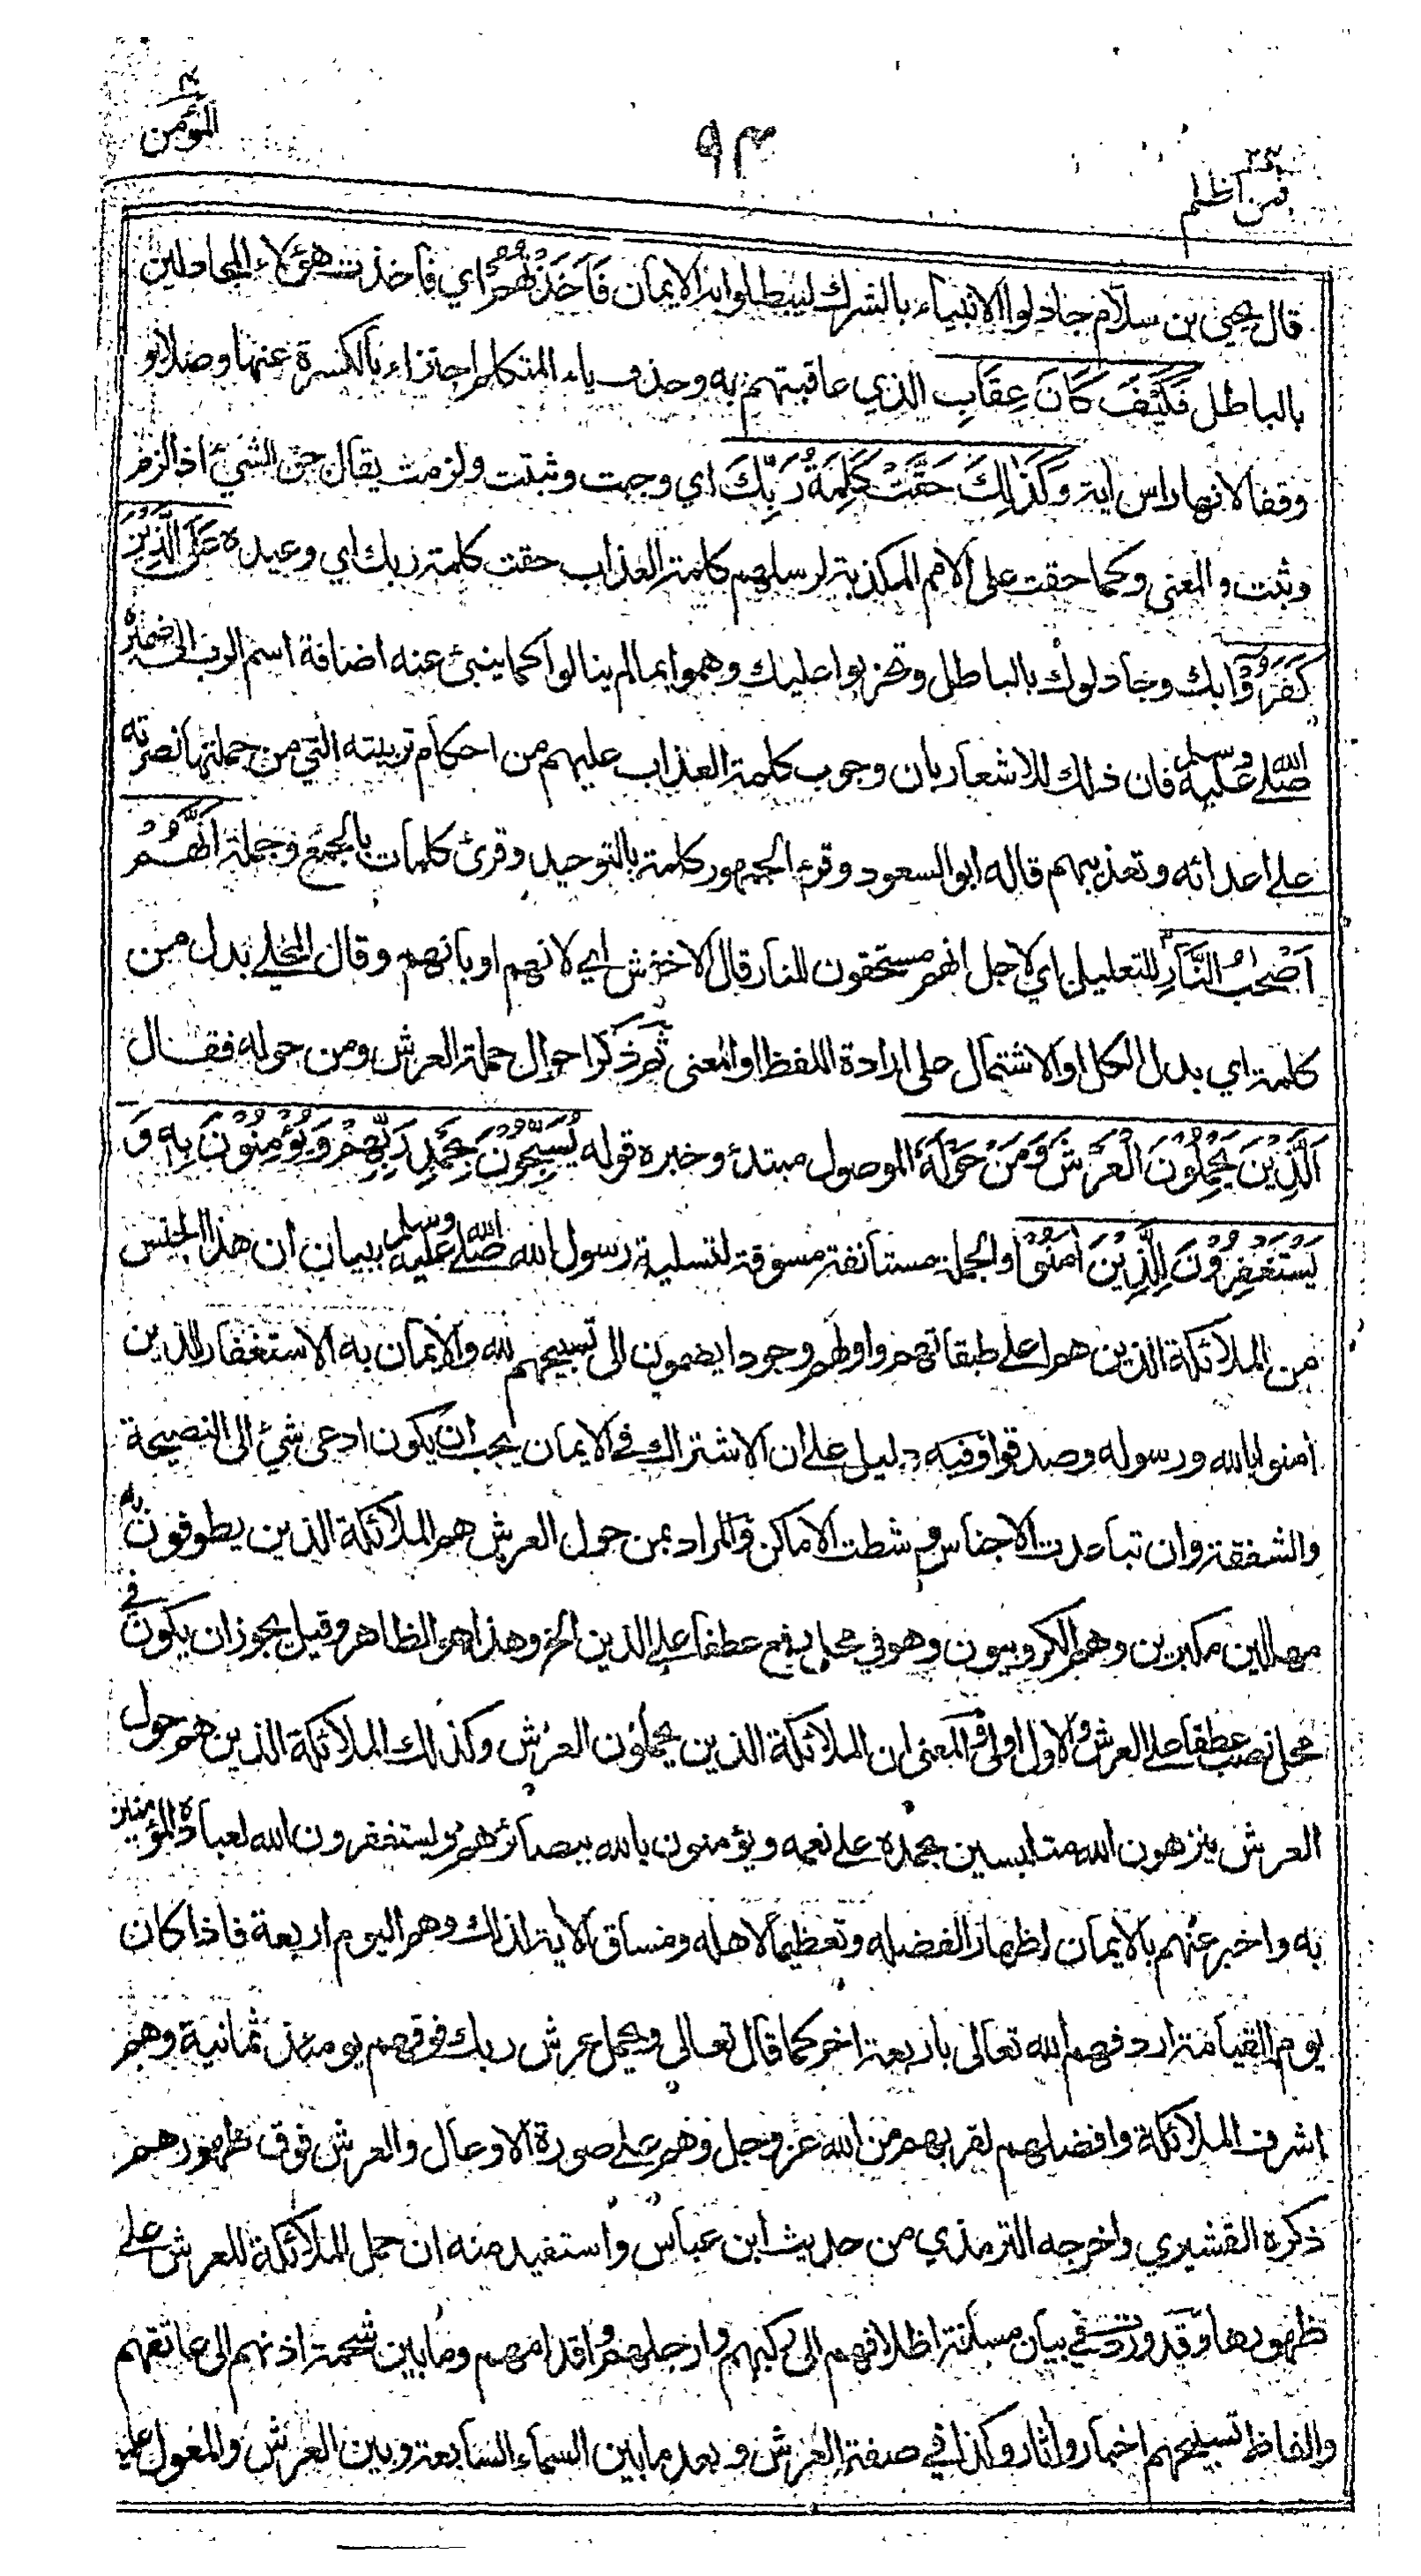 المؤمن ٤٠
٩٣
فمن أظلم ٢٤
قال يحيى بن سلام جادلوا الانبياء بالشرك ليبطلوا به الايمان فَأَخَذْتُهُمْ اي فأخذت هؤلاء المجادلين
بالباطل فَكَيْفَ كَانَ عِقَابِ الذي عاقبتهم به وحذف ياء المتكلم اجتزاء بالكسرة عنها وصلا و
وقفا لانها راس اية وَكَذٰلِكَ حَقَّتْ كَلِمَةُ رَبِّكَ اي وجبت وثبتت ولزمت يقال حق الشيئ اذا لزم
وثبت والمعنى وكما حقت على الامم المكذبة لرسلهم كلمة العذاب حقت كلمة ربك اي وعيده عَلَى الَّذِيْنَ
كَفَرُوْا بك وجادلوك بالباطل وتحزبوا عليك وهموا بما لم ينالوا كما ينبئ عنه اضافة اسم الرب الى ضميره
صلى الله عليه وسلم فان ذلك للاشعار بان وجوب كلمة العذاب عليهم من احكام تربيته التي من جملتها نصرته
على اعدائه وتعذيبهم قاله ابو السعود وقرء الجمهور كلمة بالتوحيد وقرئ كلمات بالجمع وجملة اَنَّهُمْ
اَصْحٰبُ النَّارِ للتعليل اي لاجل انهم مستحقون للنار قال الاخفش اي لانهم او بانهم وقال المحلي بدل من
كلمة اي بدل الكل او الاشتمال على ارادة اللفظ او المعنى ثم ذكر احوال حملة العرش ومن حوله فقال
اَلَّذِيْنَ يَحْمِلُوْنَ الْعَرْشَ وَمَنْ حَوْلَهٗ الموصول مبتدء وخبره قوله يُسَبِّحُوْنَ بِحَمْدِ رَبِّهِمْ وَيُؤْمِنُوْنَ بِهٖ وَ
يَسْتَغْفِرُوْنَ لِلَّذِيْنَ اٰمَنُوْا والجملة مستأنفة مسوقة لتسلية رسول الله صلى الله عليه وسلم ببيان ان هذا الجنس
من الملائكة الذين هم اعلى طبقاتهم واولهم وجودا يضمون الى تسبيحهم لله والايمان به الاستغفار للذين
امنوا بالله ورسوله وصدقوا وفيه دليل على ان الاشتراك في الايمان يجب ان يكون ادعى شيئ الى النصيحة
والشفقة وان تباعدت الاجناس و شطت الاماكن والمراد بمن حول العرش هم الملائكة الذين يطوفون به
مهللين مكبرين وهم الكروبيون وهو في محل رفع عطفا على الذين الخ وهذا هو الظاهر وقيل يجوز ان يكون في
محل نصب عطفا على العرش والاول اولى والمعنى ان الملائكة الذين يحملون العرش وكذلك الملائكة الذين هم حول
العرش ينزهون الله متلبسين بحمده على نعمه ويؤمنون بالله ببصائرهم ويستغفرون الله لعباده المؤمنين
به واخبر عنهم بالايمان اظهارا لفضله وتعظيما لاهله ومساق الاية لذلك وهم اليوم اربعة فاذا كان
يوم القيامة اردفهم الله تعالى باربعة اخر كما قال تعالى ويحمل عرش ربك فوقهم يومئذ ثمانية وهم
اشرف الملائكة وافضلهم لقربهم من الله عز وجل وهم على صورة الاوعال والعرش فوق ظهورهم
ذكره القشيري واخرجه الترمذي من حديث ابن عباس واستفيد منه ان حمل الملائكة للعرش على
ظهورها وقد وردت في بيان مسافة اظلافهم الى ركبهم وارجلهم واقدامهم وما بين شحمة اذنهم الى عاتقهم
والفاظ تسبيحهم اخبار واثار وكذا في صفة العرش و بعد ما بين السماء السابعة وبين العرش والمعول عليه